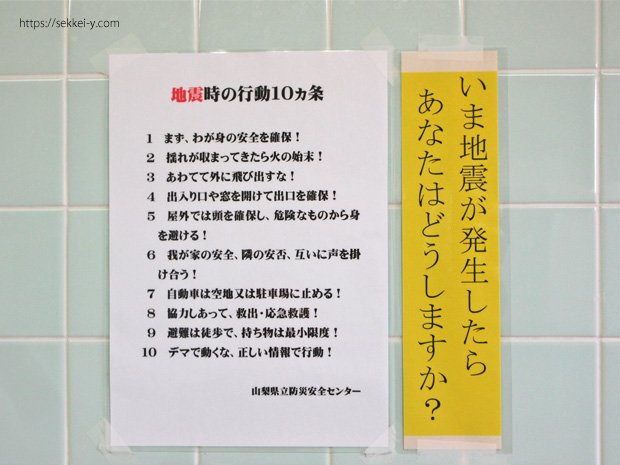 https://sekkei-y.com
地震時の行動10ヵ条
1 まず、わが身の安全を確保！
2 揺れが収まってきたら火の始末！
3 あわてて外に飛び出すな！
4 出入り口や窓を開けて出口を確保！
5 屋外では頭を確保し、危険なものから身
を避ける！
6 我が家の安全、隣の安否、互いに声を掛
け合う！
7 自動車は空地又は駐車場に止める！
8 協力しあって、救出・応急救護！
9 避難は徒歩で、持ち物は最小限度！
10 デマで動くな、正しい情報で行動！
山梨県立防災安全センター
いま地震が発生したら
あなたはどうしますか？